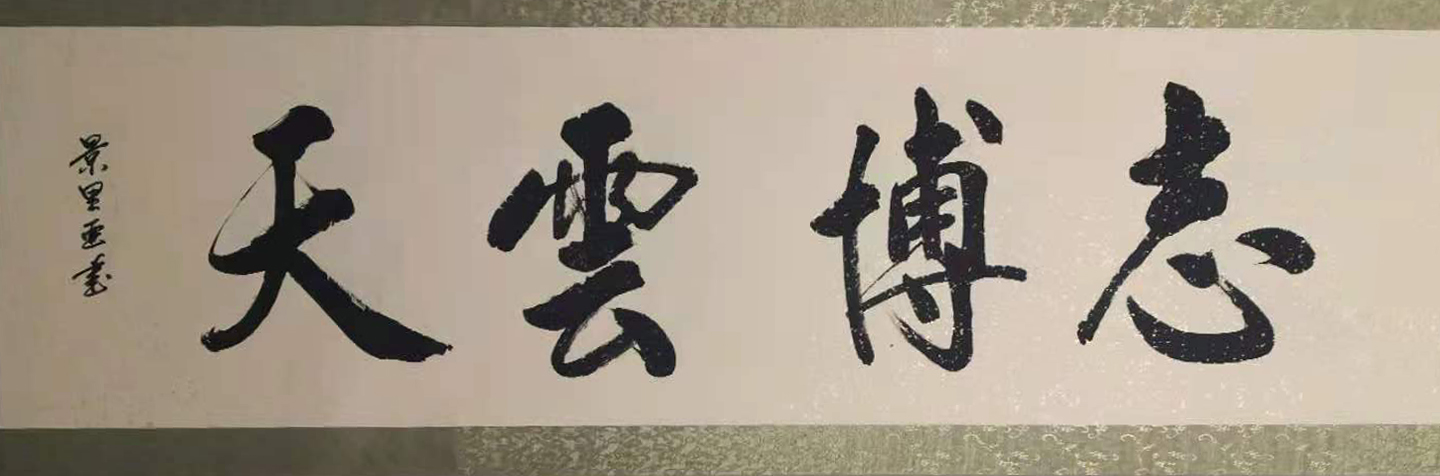 志博雲天
景里亜書